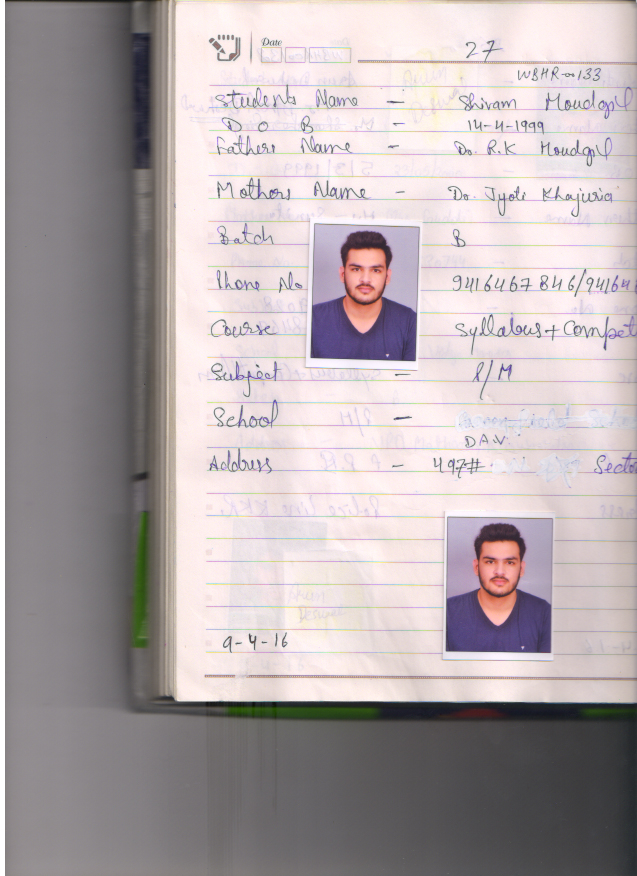 Date
27
WBHR-00133
Students Name - Shivam Moudgil
D O B - 14-4-1999
Fathers Name - Dr. R.K Moudgil
Mothers Name - Dr. Jyoti Khajuria
Batch B
Phone No 9416467846/94164
Course Syllabus + Compet
Subject - P/M
School -
D.A.V
Address - 497# Sector
9-4-16